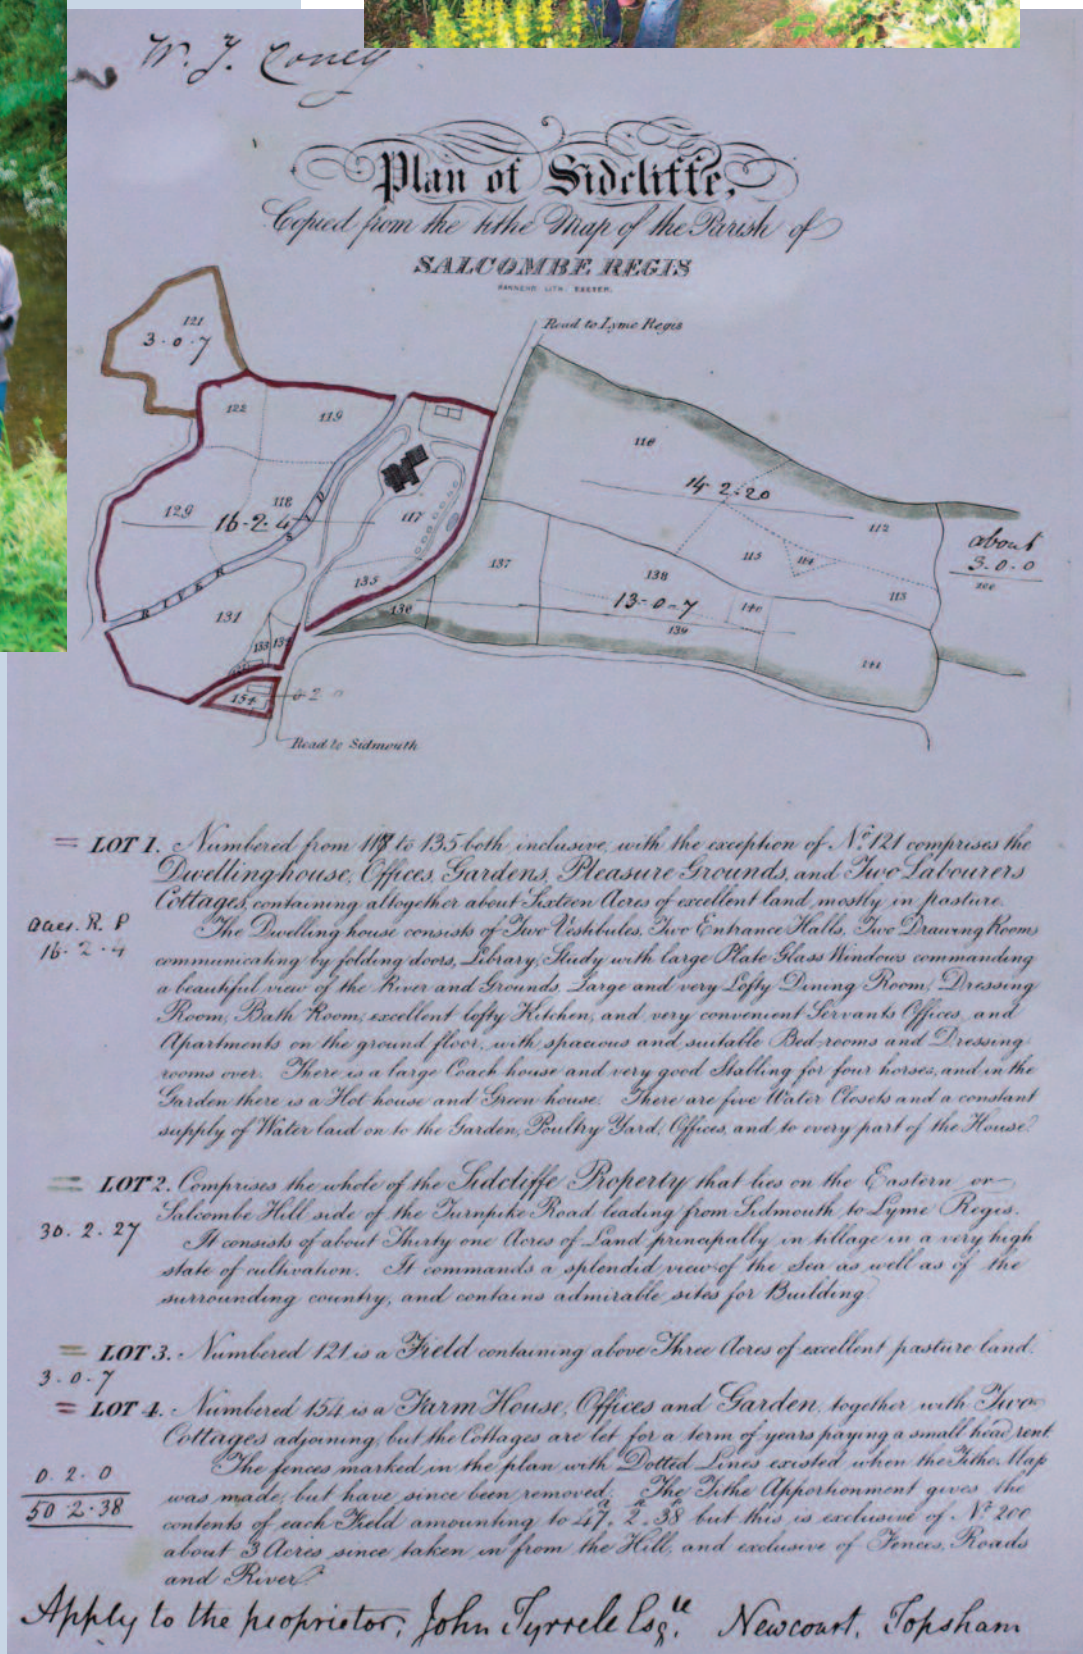 W. J. Coney
Plan of Sidcliffe,
Copied from the tithe Map of the Parish of
SALCOMBE REGIS
LITH. EXETER.
Road to Lyme Regis
121
3 . 0 . 7
122
119
116
14 . 2 . 20
129
118
16 - 2 - 4
117
112
about
3 . 0 . 0
200
115
114
137
138
135
113
13 - 0 - 7
140
RIVER SID
131
136
139
133
134
141
154
0 2 0
Road to Sidmouth
LOT 1. Numbered from 117 to 135 both inclusive, with the exception of No. 121 comprises the
Dwellinghouse, Offices, Gardens, Pleasure Grounds, and Two Labourers
Cottages, containing altogether about Sixteen Acres of excellent land, mostly in pasture.
acres. R. P
16 - 2 - 4
The Dwelling house consists of Two Vestibules, Two Entrance Halls, Two Drawing Rooms
communicating by folding doors, Library, Study with large Plate Glass Windows commanding
a beautiful view of the River and Grounds, Large and very Lofty Dining Room, Dressing
Room, Bath Room, excellent lofty Kitchen, and very convenient Servants Offices, and
Apartments on the ground floor, with spacious and suitable Bed-rooms and Dressing
rooms over. There is a large Coach house and very good Stabling for four horses, and in the
Garden there is a Hot house and Green house. There are five Water Closets and a constant
supply of Water laid on to the Garden, Poultry Yard, Offices, and to every part of the House.
LOT 2. Comprises the whole of the Sidcliffe Property that lies on the Eastern or
Salcombe Hill side of the Turnpike Road leading from Sidmouth to Lyme Regis.
30 . 2 . 27
It consists of about Thirty one Acres of Land principally in tillage in a very high
state of cultivation. It commands a splendid view of the Sea as well as of the
surrounding country, and contains admirable sites for Building.
LOT 3. Numbered 121 is a Field containing above Three Acres of excellent pasture land.
3 . 0 . 7
LOT 4. Numbered 154 is a Farm House, Offices and Garden, together with Two
Cottages adjoining, but the Cottages are let for a term of years paying a small head rent.
0 . 2 . 0
50 2 . 38
The fences marked in the plan with Dotted Lines existed when the Tithe Map
was made, but have since been removed. The Tithe Apportionment gives the
contents of each Field amounting to 47. 2. 38 but this is exclusive of No. 200
about 3 Acres since taken in from the Hill, and exclusive of Fences, Roads
and River.
Apply to the proprietor, John Tyrrele Esqre. Newcourt, Topsham